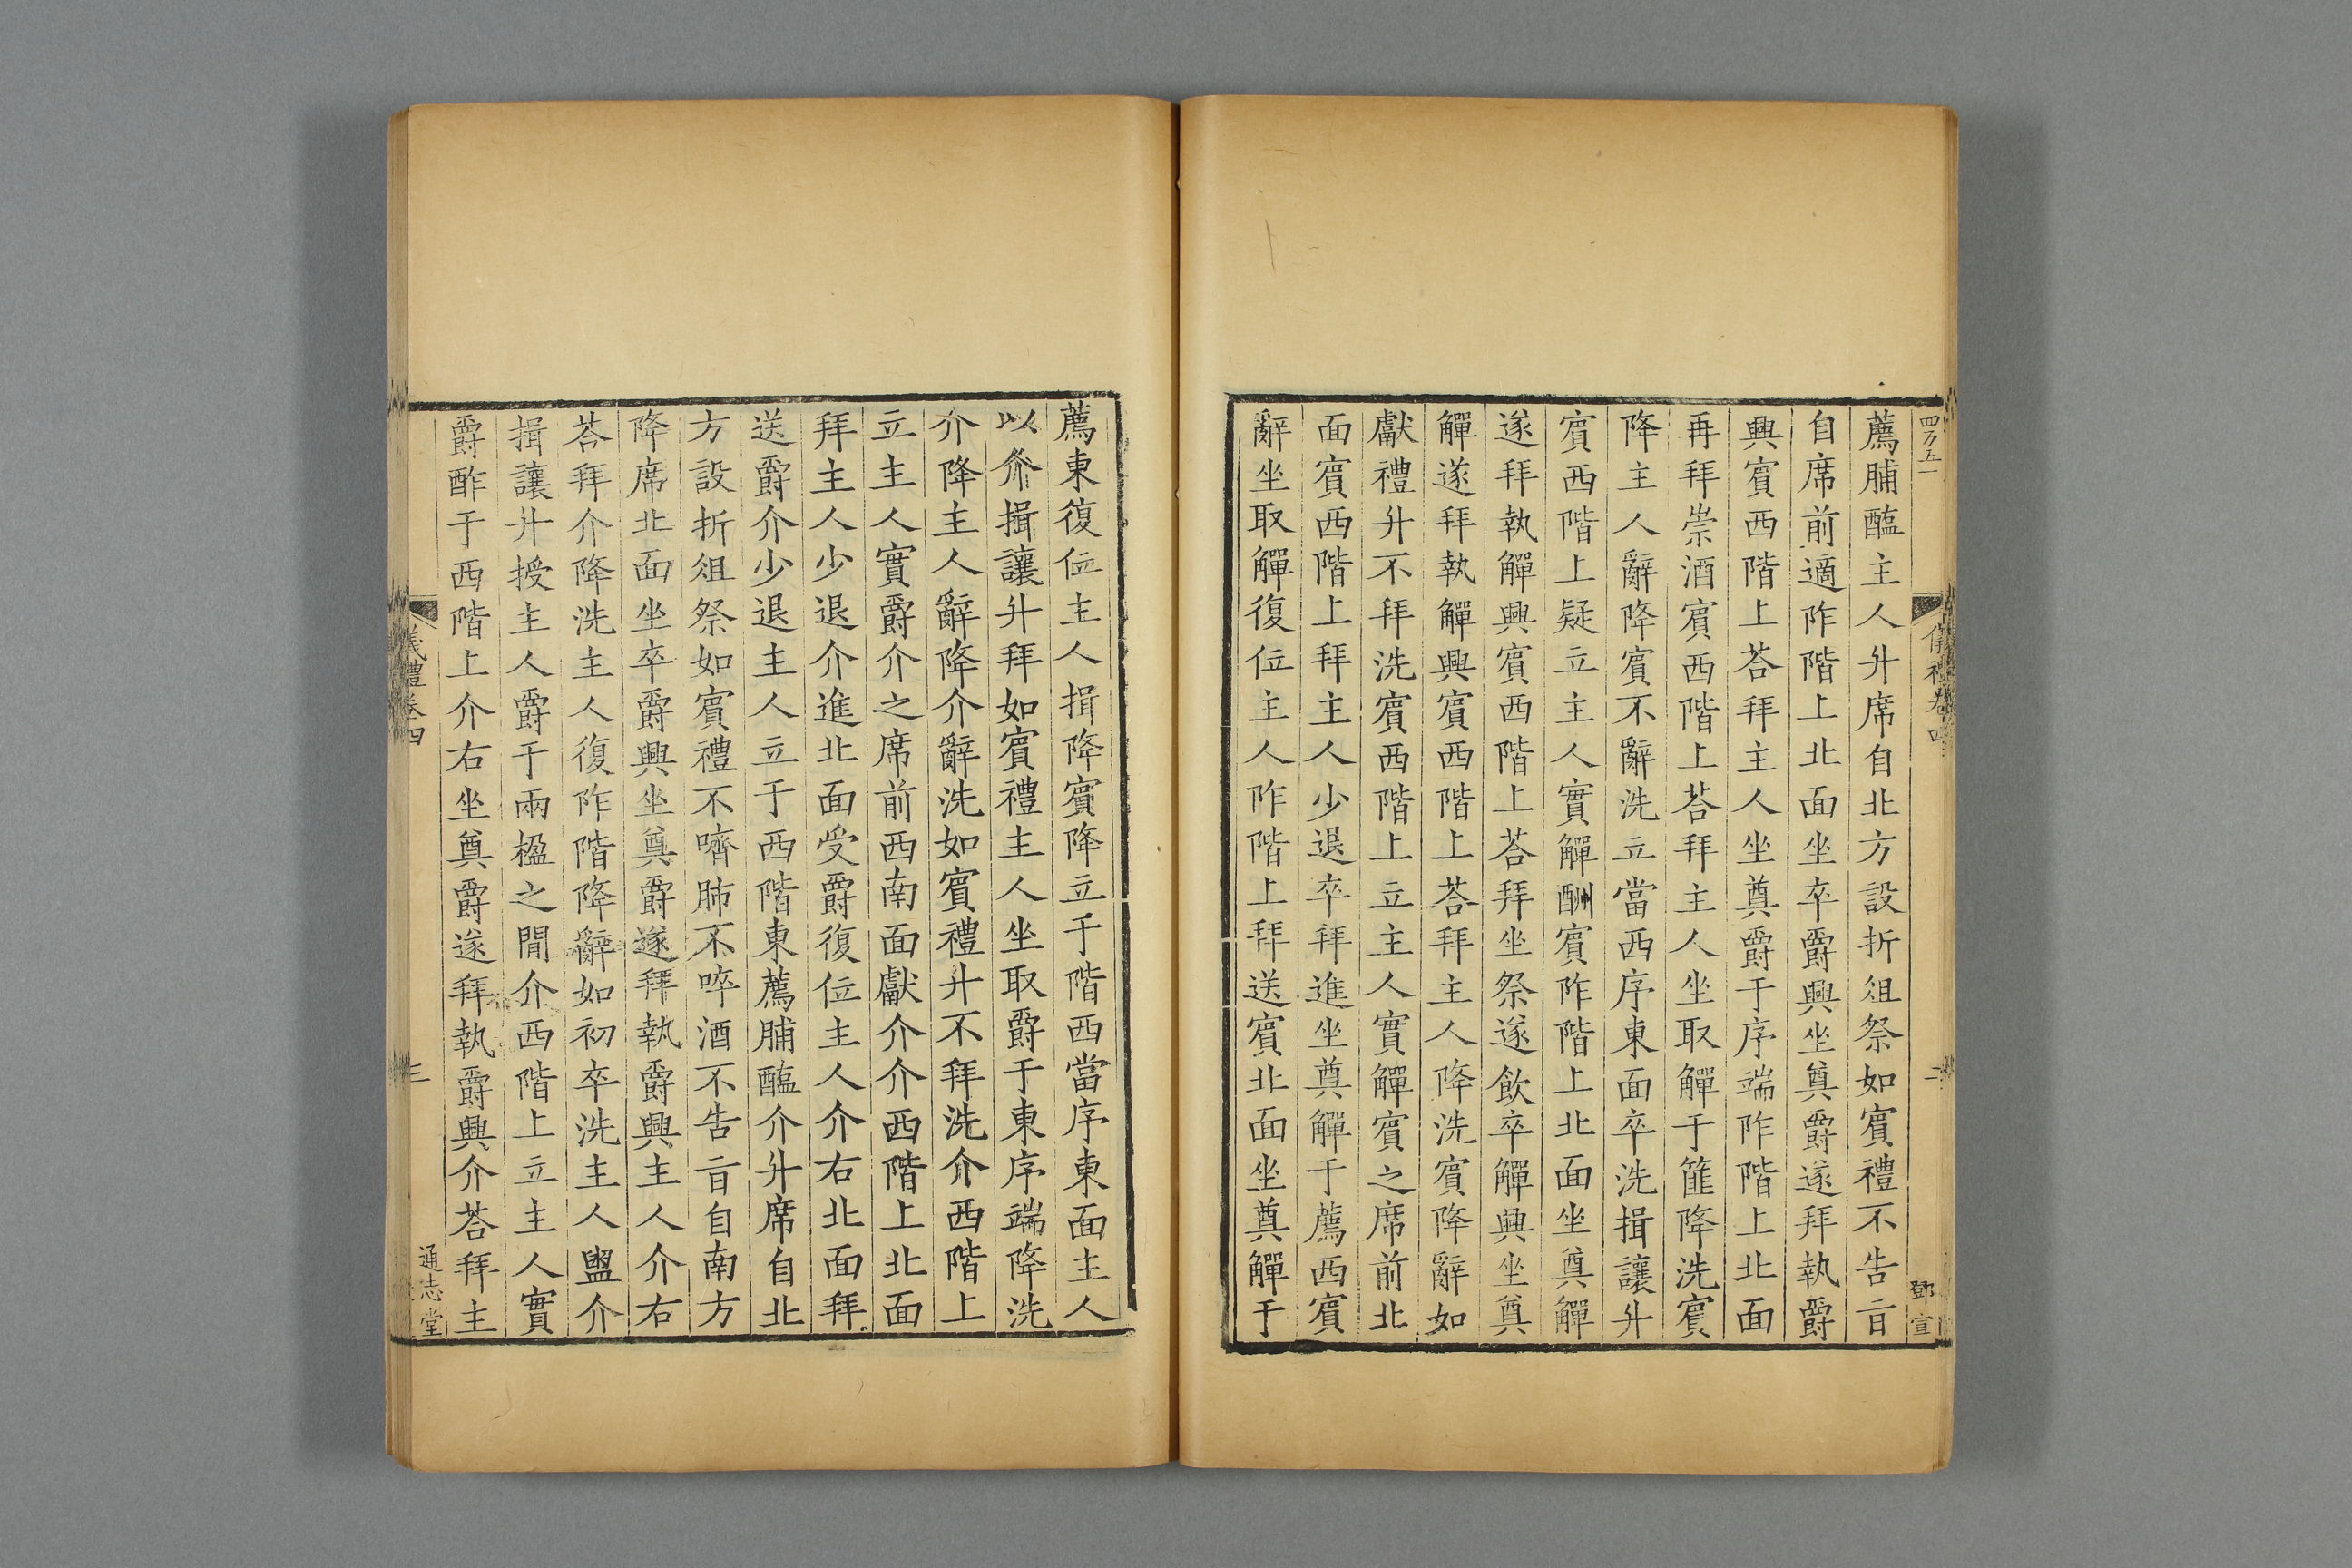 四万五一
儀禮卷四
二
鄧宣
薦脯醢主人升席自北方設折俎祭如賔禮不告㫖
自席前適阼階上北面坐卒爵興坐奠爵遂拜執爵
興賔西階上荅拜主人坐奠爵于序端阼階上北面
再拜崇酒賔西階上荅拜主人坐取觶于篚降洗賔
降主人辭降賔不辭洗立當西序東面卒洗揖讓升
賔西階上疑立主人實觶酬賔阼階上北面坐奠觶
遂拜執觶興賔西階上荅拜坐祭遂飲卒觶興坐奠
觶遂拜執觶興賔西階上荅拜主人降洗賔降辭如
獻禮升不拜洗賔西階上立主人實觶賔之席前北
面賔西階上拜主人少退卒拜進坐奠觶于薦西賔
辭坐取觶復位主人阼階上拜送賔北面坐奠觶于
薦東復位主人揖降賔降立于階西當序東面主人
以介揖讓升拜如賔禮主人坐取爵于東序端降洗
介降主人辭降介辭洗如賔禮升不拜洗介西階上
立主人實爵介之席前西南面獻介介西階上北面
拜主人少退介進北面受爵復位主人介右北面拜
送爵介少退主人立于西階東薦脯醢介升席自北
方設折俎祭如賔禮不嚌肺不啐酒不告㫖自南方
降席北面坐卒爵興坐奠爵遂拜執爵興主人介右
荅拜介降洗主人復阼階降辭如初卒洗主人盥介
揖讓升授主人爵于兩楹之閒介西階上立主人實
爵酢于西階上介右坐奠爵遂拜執爵興介荅拜主
儀禮卷四
三
通志堂